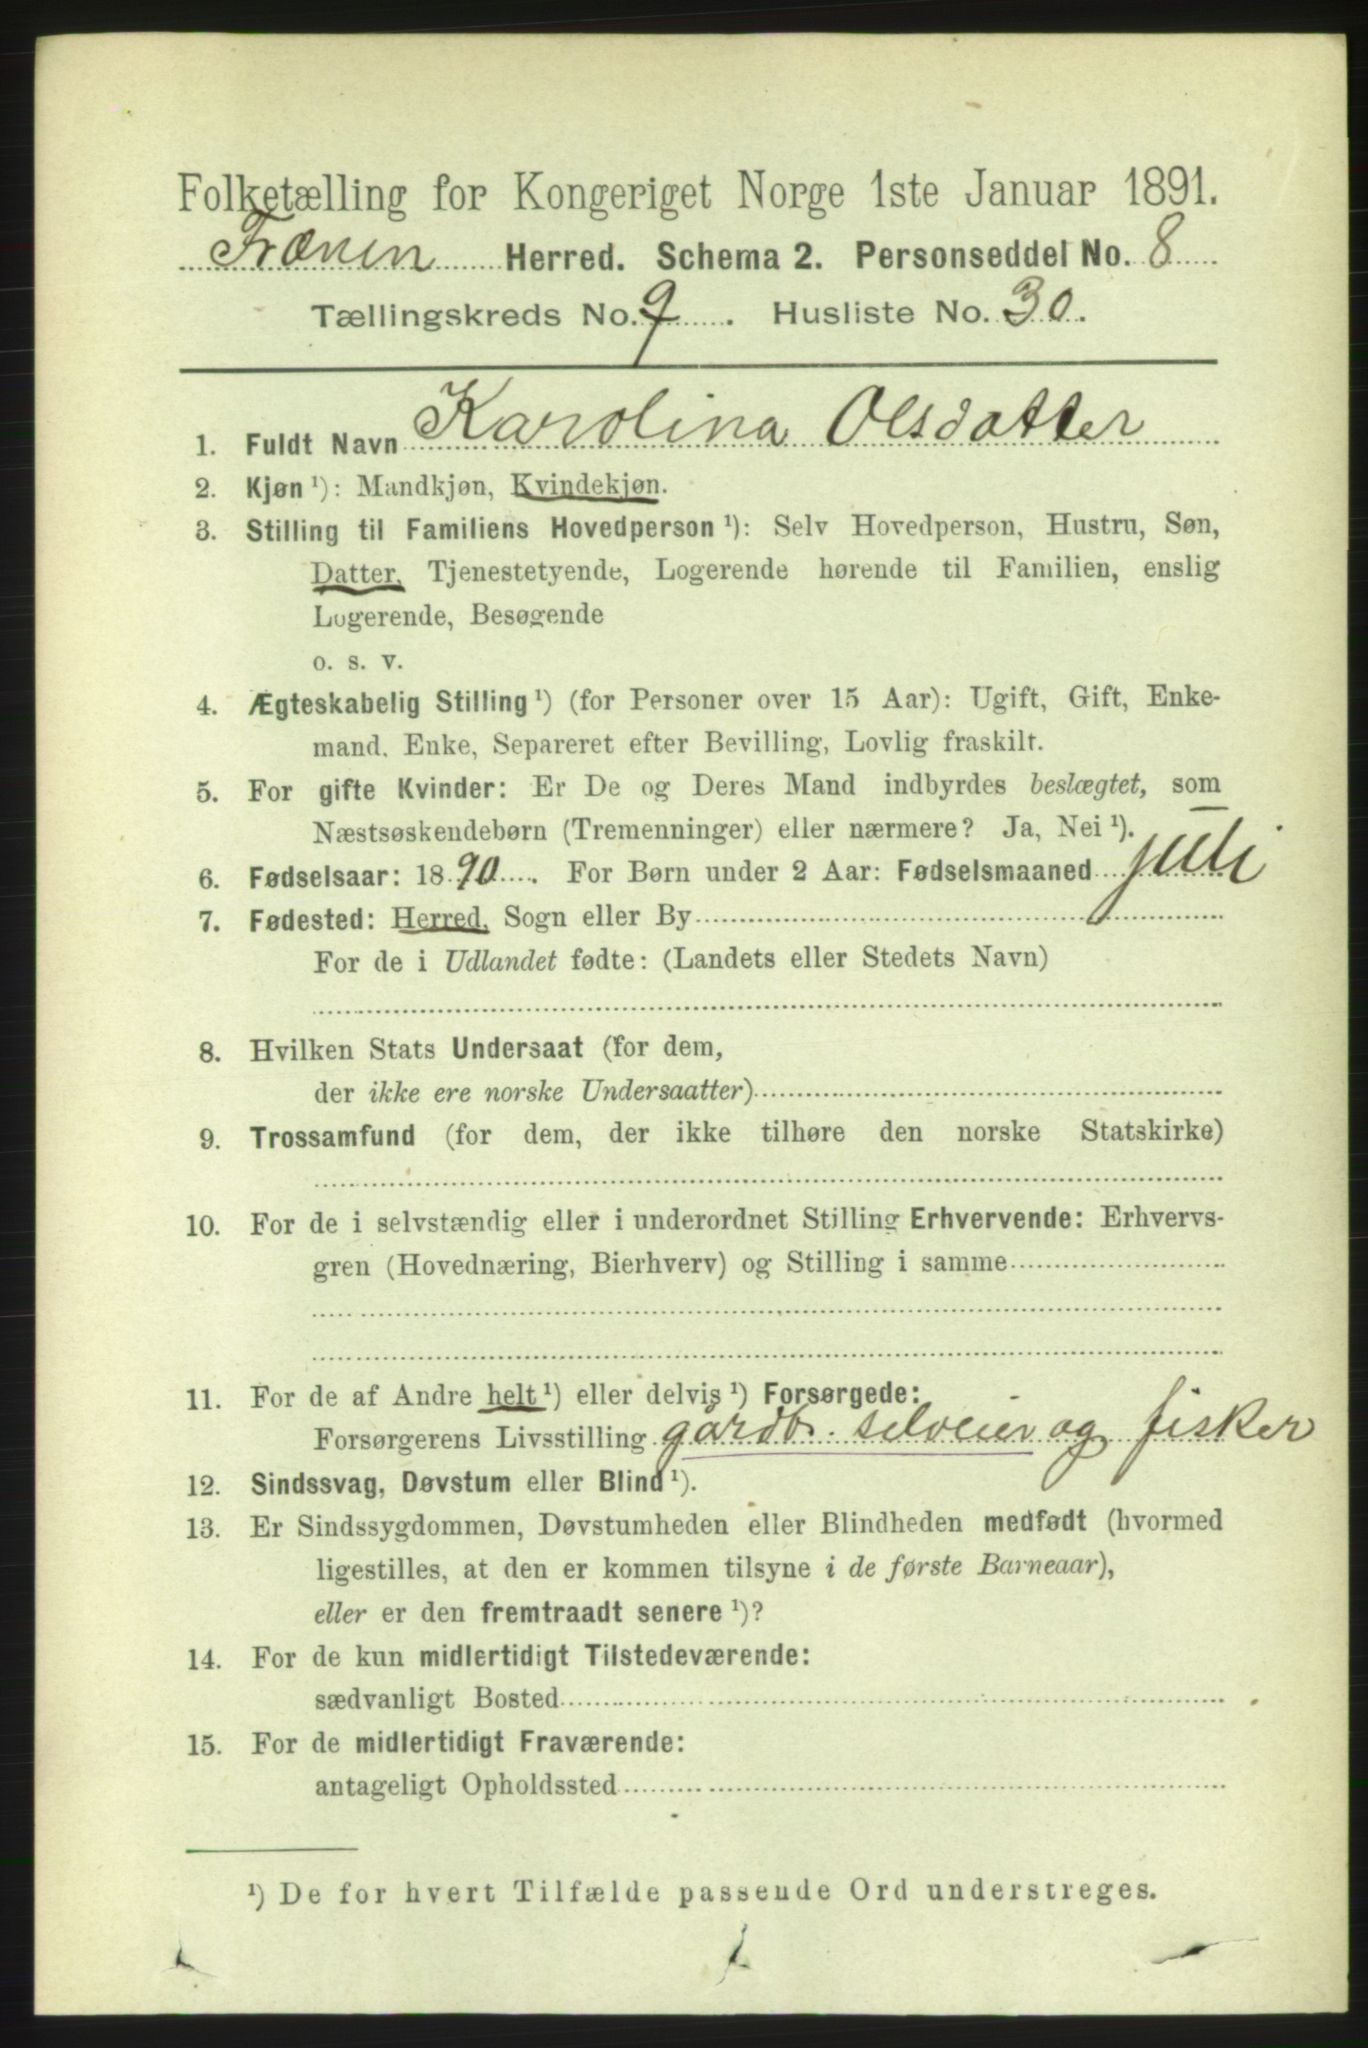 Folketælling for Kongeriget Norge 1ste Januar 1891.
Frænen Herred. Schema 2. Personseddel No. 8
Tællingskreds No. 9. Husliste No. 30.
1. Fuldt Navn Karolina Olsdatter
2. Kjøn ¹): Mandkjøn, Kvindekjøn.
3. Stilling til Familiens Hovedperson ¹): Selv Hovedperson, Hustru, Søn,
Datter, Tjenestetyende, Logerende hørende til Familien, enslig
Logerende, Besøgende
o. s. v.
4. Ægteskabelig Stilling ¹) (for Personer over 15 Aar): Ugift, Gift, Enke-
mand, Enke, Separeret efter Bevilling, Lovlig fraskilt.
5. For gifte Kvinder: Er De og Deres Mand indbyrdes beslægtet, som
Næstsøskendebørn (Tremenninger) eller nærmere? Ja, Nei ¹).
6. Fødselsaar: 1890. For Børn under 2 Aar: Fødselsmaaned juli
7. Fødested: Herred, Sogn eller By
For de i Udlandet fødte: (Landets eller Stedets Navn)
8. Hvilken Stats Undersaat (for dem,
der ikke ere norske Undersaatter)
9. Trossamfund (for dem, der ikke tilhøre den norske Statskirke)
10. For de i selvstændig eller i underordnet Stilling Erhvervende: Erhvervs-
gren (Hovednæring, Bierhverv) og Stilling i samme
11. For de af Andre helt ¹) eller delvis ¹) Forsørgede:
Forsørgerens Livsstilling gårdb. selveier og fisker
12. Sindssvag, Døvstum eller Blind ¹).
13. Er Sindssygdommen, Døvstumheden eller Blindheden medfødt (hvormed
ligestilles, at den er kommen tilsyne i de første Barneaar),
eller er den fremtraadt senere ¹)?
14. For de kun midlertidigt Tilstedeværende:
sædvanligt Bosted
15. For de midlertidigt Fraværende:
antageligt Opholdssted
¹) De for hvert Tilfælde passende Ord understreges.